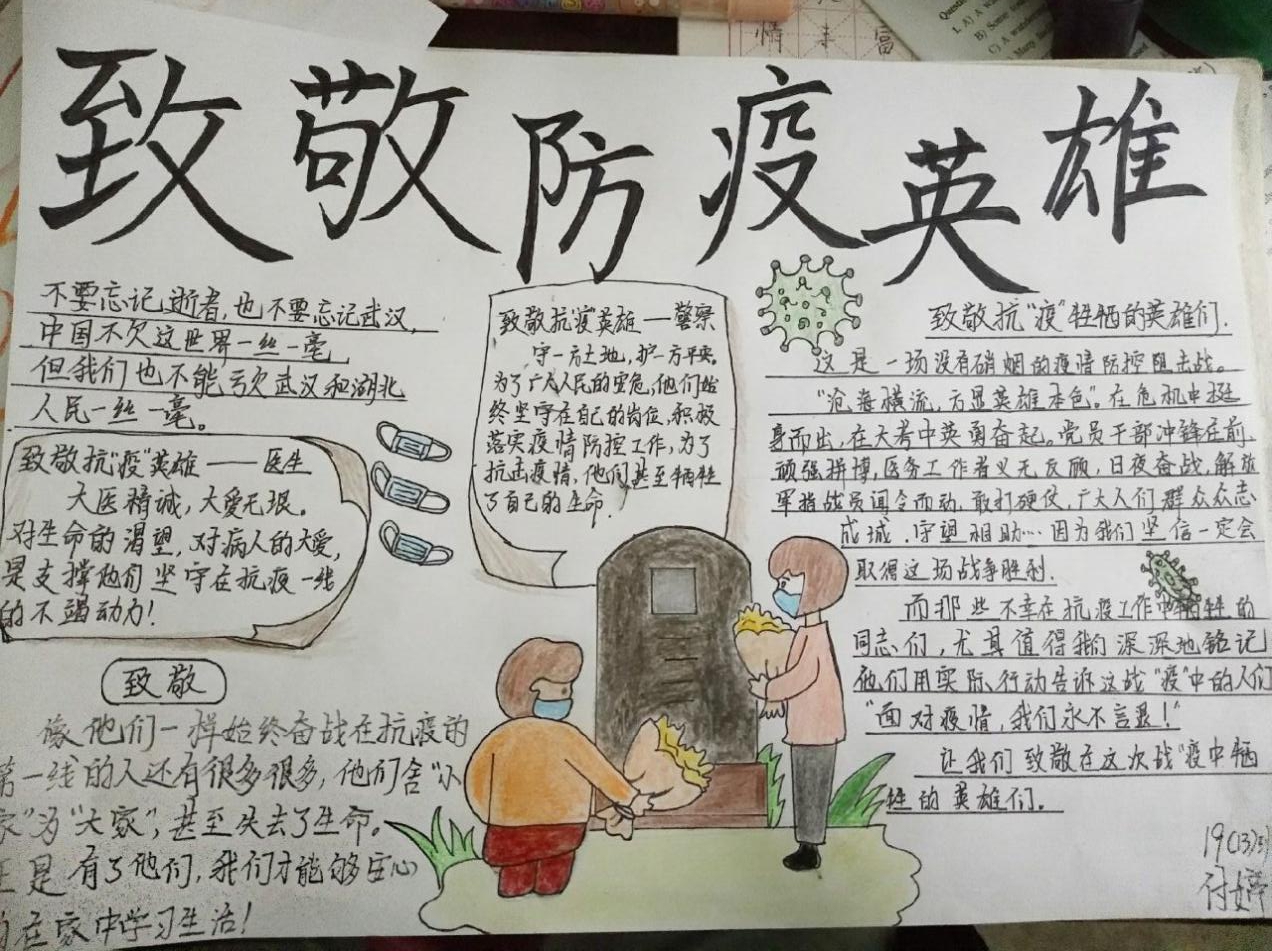 致敬防疫英雄
不要忘记逝者,也不要忘记武汉,
中国不欠这世界一丝一毫
但我们也不能亏欠武汉和湖北
人民一丝一毫。
致敬抗"疫"英雄——医生
大医精诚,大爱无垠。
对生命的渴望,对病人的大爱,
是支撑他们坚守在抗疫一线
的不竭动力!
致敬
像他们一样始终奋战在抗疫的
第一线的人还有很多很多,他们舍"小
家"为"大家",甚至失去了生命。
正是有了他们,我们才能够安心
的在家中学习生活!
致敬抗"疫"英雄——警察
守一方土地,护一方平安。
为了广大人民的安危,他们始
终坚守在自己的岗位,积极
落实疫情防控工作,为了
抗击疫情,他们甚至牺牲
了自己的生命!
致敬抗"疫"牲牺的英雄们.
这是一场没有硝烟的疫情防控阻击战。
"沧海横流,方显英雄本色"。在危机中挺
身而出,在大考中英勇奋起。党员干部冲锋在前,
顽强拼博,医务工作者义无反顾,日夜奋战,解放
军指战员闻令而动,敢打硬仗,广大人们群众众志
成城,守望相助…因为我们坚信一定会
取得这场战争胜利.
而那些不幸在抗疫工作中牺牲的
同志们,尤其值得我们深深地铭记
他们用实际行动告诉这战"疫"中的人们
"面对疫情,我们永不言退!"
让我们致敬在这次战"疫中牺
牲的英雄们。
19(13)
付婷
情 丰 富
1. A) A
B) Some
C) A